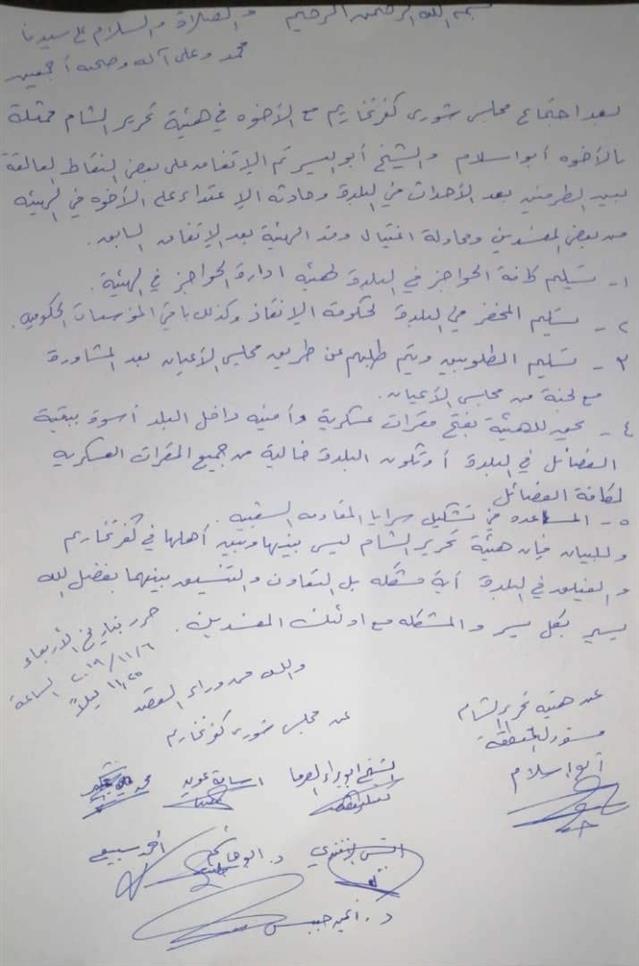 بسم الله الرحمن الرحيم والصلاة والسلام على سيدنا
محمد وعلى آله وصحبه أجمعين
بعد اجتماع مجلس شورى كفرتخاريم مع الأخوه في هيئة تحرير الشام ممثلة
بالأخوه أبو اسلام والشيخ أبو اليسر تم الإتفاق على بعض النقاط العالقة
بين الطرفين بعد الأحداث في البلدة وحادثه الإعتداء على الأخوه في الهيئه
من بعض المفسدين ومحاولة اغتيال وفد الهيئة بعد الإتفاق السابق.
١- تسليم كافة الحواجز في البلدة لهيئه ادارة الحواجز في الهيئة.
٢- تسليم المخفر في البلدة لحكومة الإنقاذ وكذلك باقي المؤسسات الحكوميه.
٣- تسليم المطلوبين ويتم طلبهم عن طريق مجلس الأعيان بعد المشاورة
مع لجنة من مجلس الأعيان.
٤- يحق للهيئة بفتح مقرات عسكرية وأمنيه داخل البلد أسوة ببقية
الفصائل في البلدة أو تكون البلدة خالية من جميع المقرات العسكريه
لكافة الفصائل
٥- المساعده في تشكيل سرايا المقاومه الشعبيه.
وللبيان فإن هيئة تحرير الشام ليس بينها وبين أهلها في كفرتخاريم
والفيلق في البلدة أية مشكله بل التعاون والتنسيق بينهما بفضل الله
يسير بكل يسر والمشكله مع اولئك المفسدين.
حرر بتاريخ الأربعاء
٢٠١٩/١١/٦ الساعة
ليلاً
والله من وراء القصد
عن هيئة تحرير الشام
مسؤول المنطقة
أبو اسلام
عن مجلس شورى كفرتخاريم
الشيخ ابو
اسامة
محمد
د. ابو
احمد
د.